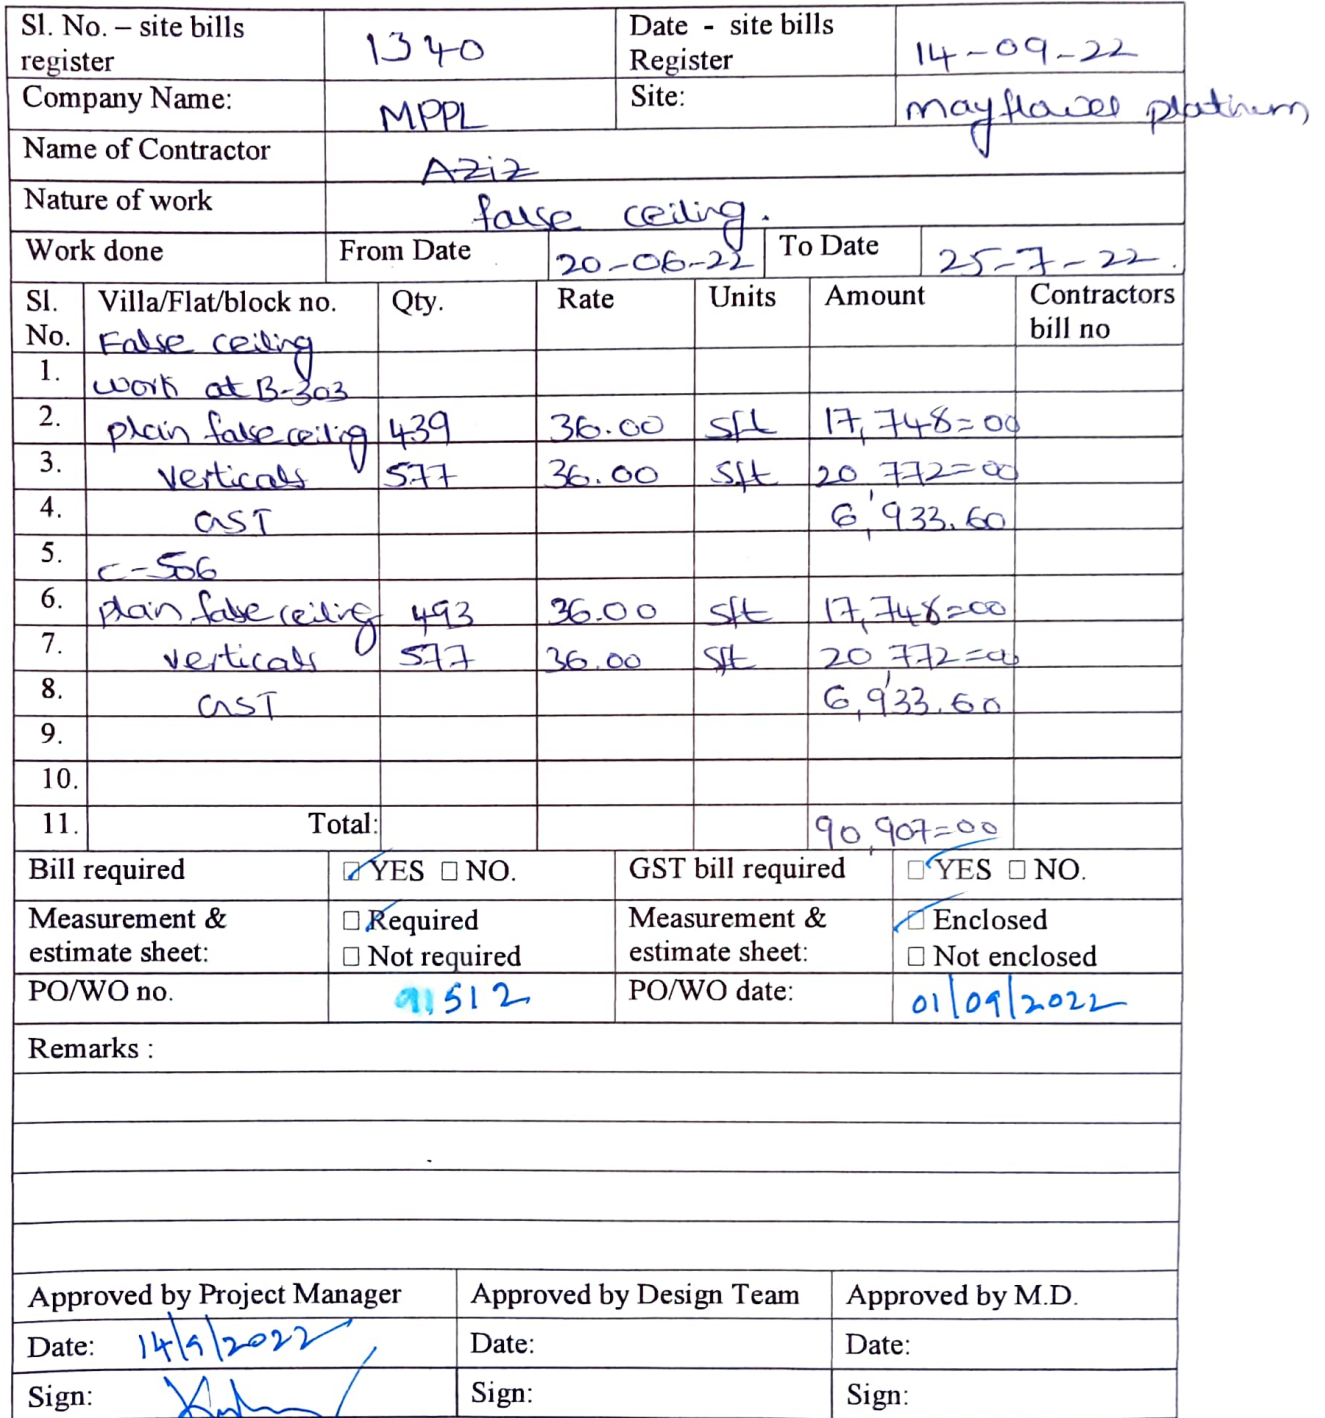 Sl. No. – site bills register 1340 Date - site bills Register 14-09-22
Company Name: MPPL Site: mayflower platinum
Name of Contractor Aziz
Nature of work false ceiling.
Work done From Date 20-06-22 To Date 25-7-22.
Sl. No. Villa/Flat/block no. Qty. Rate Units Amount Contractors bill no
False ceiling
1. work at B-303
2. plain false ceiling 439 36.00 sft 17,748=00
3. verticals 577 36.00 sft 20,772=00
4. GST 6,933.60
5. C-506
6. plain false ceiling 493 36.00 sft 17,748=00
7. verticals 577 36.00 sft 20,772=00
8. GST 6,933.60
9.
10.
11. Total: 90,907=00
Bill required ☑ YES ☐ NO. GST bill required ☑ YES ☐ NO.
Measurement & estimate sheet: ☑ Required Measurement & estimate sheet: ☑ Enclosed
☐ Not required ☐ Not enclosed
PO/WO no. 91512 PO/WO date: 01/09/2022
Remarks :
Approved by Project Manager Approved by Design Team Approved by M.D.
Date: 14/9/2022 Date: Date:
Sign: Sign: Sign: